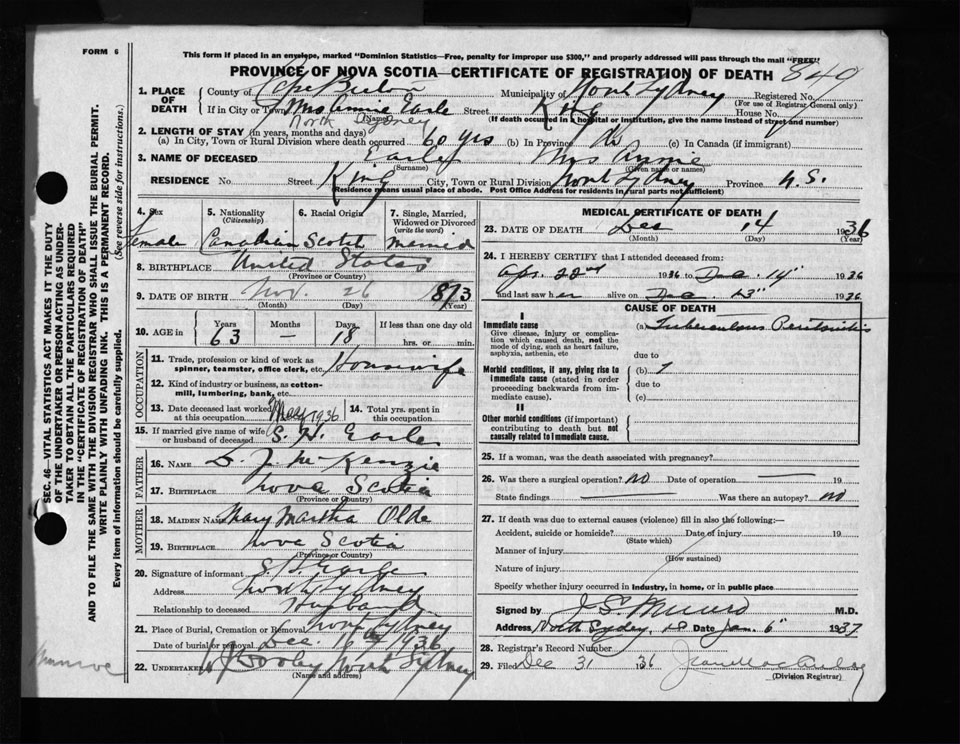 FORM 6
This form if placed in an envelope, marked "Dominion Statistics—Free, penalty for improper use $300," and properly addressed will pass through the mail "FREE"
PROVINCE OF NOVA SCOTIA—CERTIFICATE OF REGISTRATION OF DEATH
840
1. PLACE OF DEATH
County of Cape Breton Municipality of North Sydney Registered No.
(For use of Registrar General only)
If in City or Town Mrs Annie Earle Street King House No.
(Name) (If death occurred in a hospital or institution, give the name instead of street and number)
North Sydney
2. LENGTH OF STAY (in years, months and days)
(a) In City, Town or Rural Division where death occurred 60 yrs (b) In Province (c) In Canada (if immigrant)
3. NAME OF DECEASED Earle Mrs Annie
(Surname) (Given name or names)
RESIDENCE No. Street King City, Town or Rural Division North Sydney Province N.S.
Residence means usual place of abode. Post Office Address for residents in rural parts not sufficient)
4. Sex
female
5. Nationality
(Citizenship)
Canadian
6. Racial Origin
Scotch
7. Single, Married, Widowed or Divorced
(write the word)
married
8. BIRTHPLACE United States
(Province or Country)
9. DATE OF BIRTH Nov. 26 1873
(Month) (Day) (Year)
10. AGE in
Years Months Days If less than one day old
63 — 18 hrs. or min.
OCCUPATION
11. Trade, profession or kind of work as spinner, teamster, office clerk, etc. Housewife
12. Kind of industry or business, as cotton-mill, lumbering, bank, etc.
13. Date deceased last worked at this occupation 1936
14. Total yrs. spent in this occupation
15. If married give name of wife or husband of deceased S. H. Earle
FATHER
16. NAME D. J. McKenzie
17. BIRTHPLACE Nova Scotia
(Province or Country)
MOTHER
18. MAIDEN NAME Mary Martha Olde
19. BIRTHPLACE Nova Scotia
(Province or Country)
20. Signature of informant S H Earle
Address North Sydney
Relationship to deceased Husband
21. Place of Burial, Cremation or Removal North Sydney
Date of burial or removal Dec. 16 1936
22. UNDERTAKER North Sydney
(Name and address)
MEDICAL CERTIFICATE OF DEATH
23. DATE OF DEATH Dec 14 1936
(Month) (Day) (Year)
24. I HEREBY CERTIFY that I attended deceased from:
Apr. 22nd 1936 to Dec. 14" 1936
and last saw her alive on Dec. 13" 1936
CAUSE OF DEATH
I
Immediate cause
Give disease, injury or complication which caused death, not the mode of dying, such as heart failure, asphyxia, asthenia, etc
(a) Tuberculous Peritonitis
due to
Morbid conditions, if any, giving rise to immediate cause (stated in order proceeding backwards from immediate cause).
(b)
due to
(c)
II
Other morbid conditions (if important) contributing to death but not causally related to immediate cause.
25. If a woman, was the death associated with pregnancy?
26. Was there a surgical operation? No Date of operation 19
State findings Was there an autopsy? No
27. If death was due to external causes (violence) fill in also the following:—
Accident, suicide or homicide? Date of injury 19
(State which)
Manner of injury
(How sustained)
Nature of injury
Specify whether injury occurred in industry, in home, or in public place
Signed by M.D.
Address North Sydney, N.S. Date Jan. 6" 1937
28. Registrar's Record Number
29. Filed Dec 31 36
(Division Registrar)
SEC. 46—VITAL STATISTICS ACT MAKES IT THE DUTY OF THE UNDERTAKER OR PERSON ACTING AS UNDERTAKER TO OBTAIN ALL THE PARTICULARS REQUIRED IN THE "CERTIFICATE OF REGISTRATION OF DEATH"
AND TO FILE THE SAME WITH THE DIVISION REGISTRAR WHO SHALL ISSUE THE BURIAL PERMIT.
WRITE PLAINLY WITH UNFADING INK. THIS IS A PERMANENT RECORD.
Every item of information should be carefully supplied. (See reverse side for instructions.)
Munroe